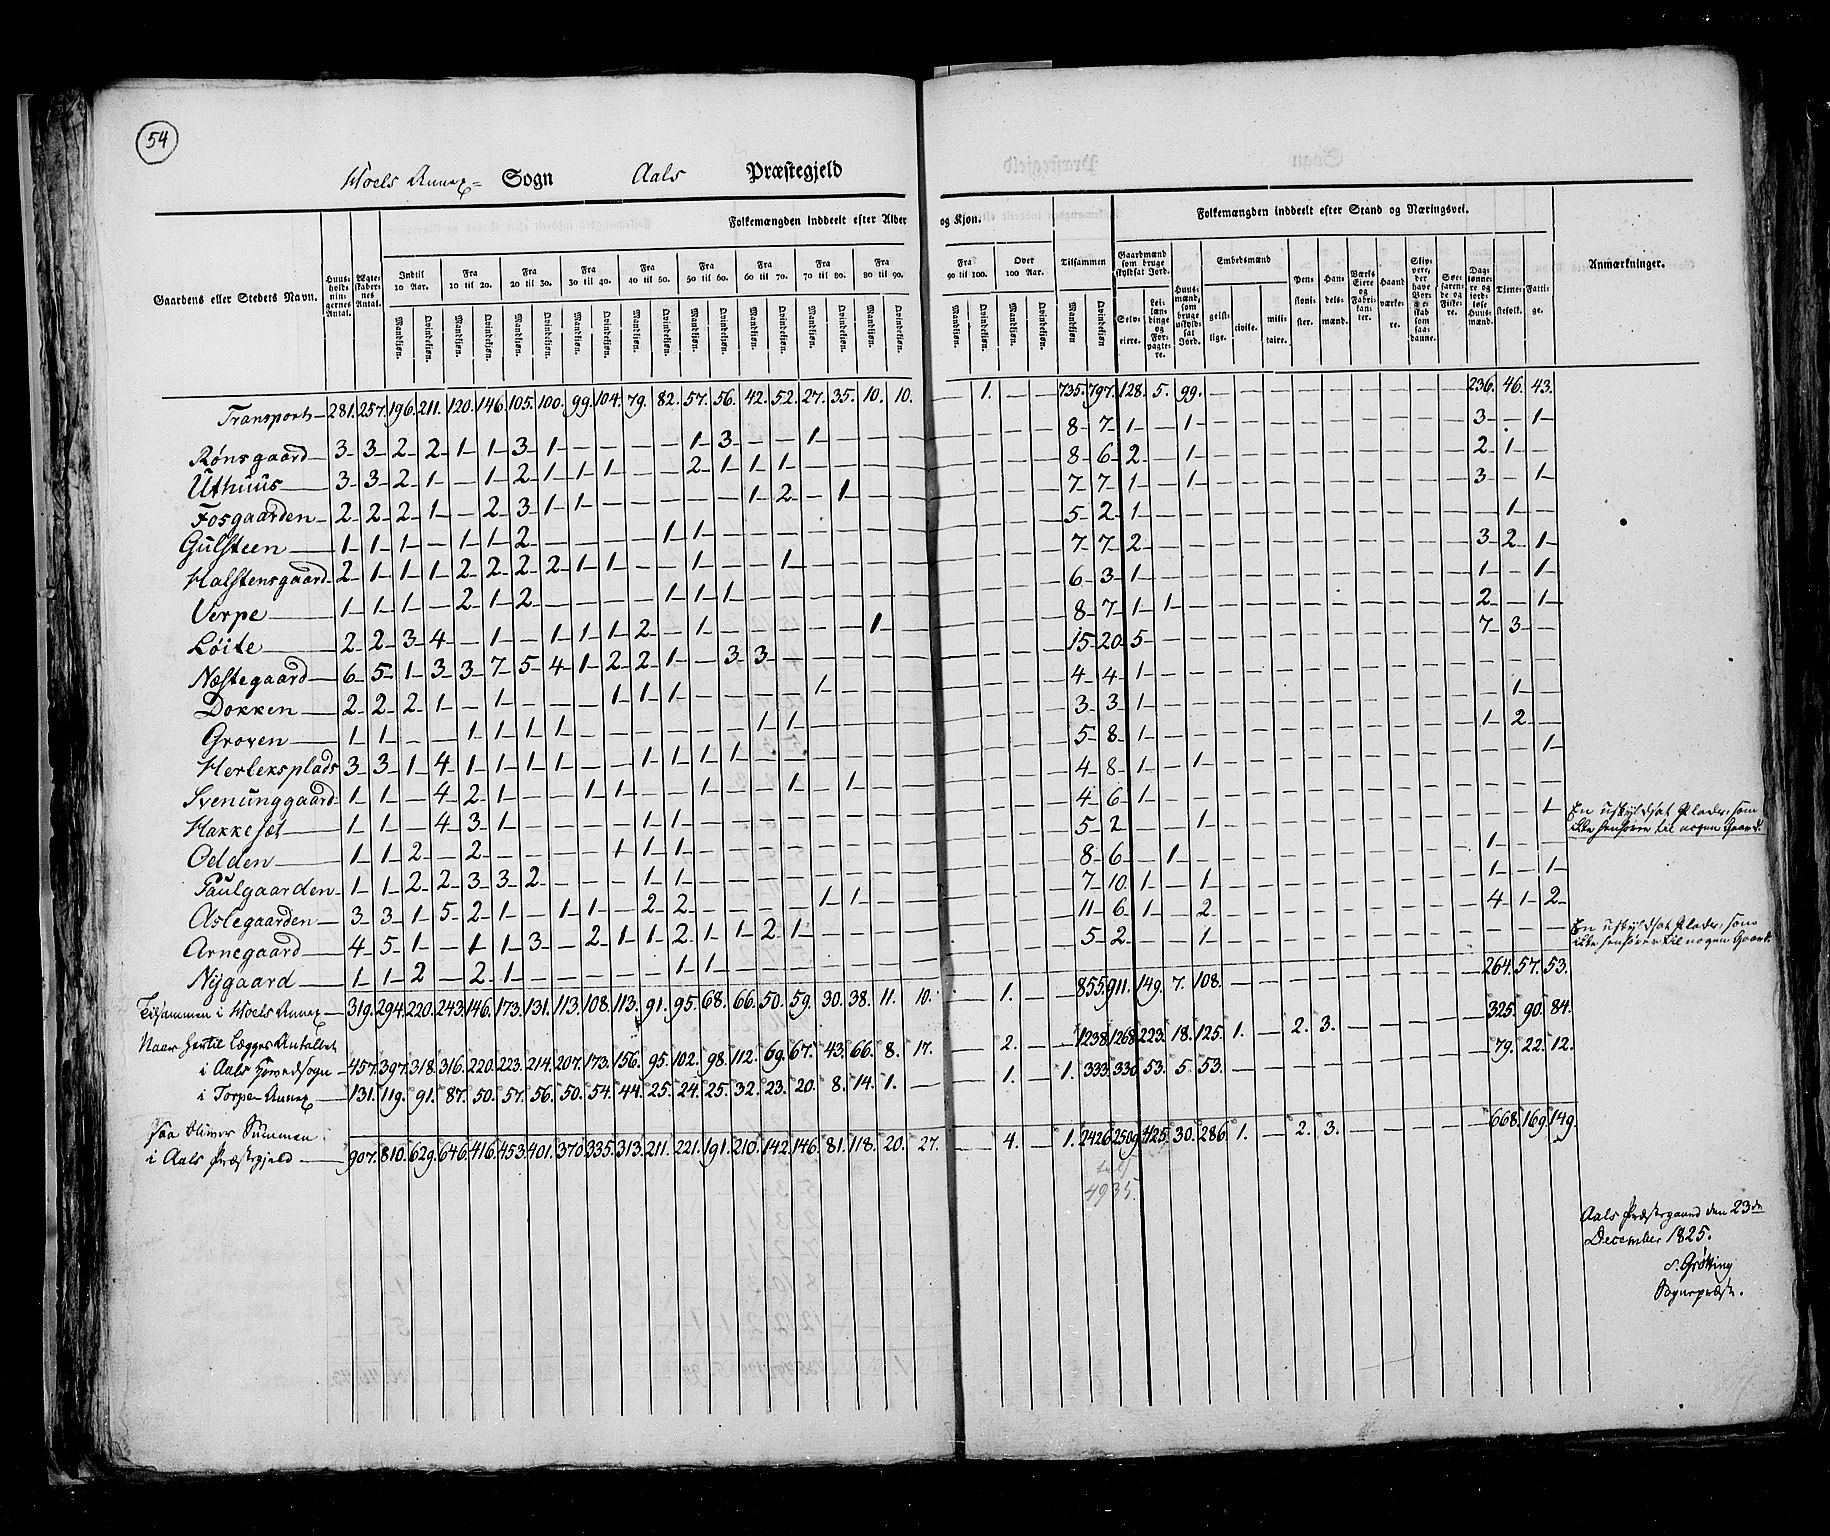 54
Hoels Annex= Sogn Aals Præstegjeld
Gaardens eller Stedets Navn.
Huus-holdnin-gernes Antal.
Ægte-skaber-nes Antal.
Folkemængden inddeelt efter Alder og Kjøn.
Indtil 10 Aar.
Fra 10 til 20.
Fra 20 til 30.
Fra 30 til 40.
Fra 40 til 50.
Fra 50 til 60.
Fra 60 til 70.
Fra 70 til 80.
Fra 80 til 90.
Fra 90 til 100.
Over 100 Aar.
Tilsammen
Mandkjøn. Qvindekjøn.
Folkemængden inddeelt efter Stand og Næringsvei.
Gaardmænd som bruge skyldsat Jord.
Selveiere.
Leilændinge og Forpagtere.
Huusmænd, som bruge uskyldsat Jord.
Embedsmænd
geistlige. civile. militaire.
Pensionister.
Handelsmænd.
Værks Eiere og Fabrikanter.
Haandværkere.
Tjenestefolk.
Fattige.
Anmærkninger.
Transport 281. 257. 196. 211. 120. 146. 105. 100. 99. 104. 79. 82. 57. 56. 42. 52. 27. 35. 10. 10. — 1. — — 735. 797. 128. 5. 99. — — — — — — — — — 236. 46. 43.
Rønsgaard 3 3 2 2 1 1 3 1 — — — — 1 3 — — 1 — — — 8 7 1 — 1 3 — 1
Uthuus 3 3 2 1 — 1 2 1 1 1 — — 2 1 1 1 — — — — 8 6 2 — 1 2 1 —
Fosgaarden 2 2 2 1 — 2 3 1 1 — — — — — 1 2 — 1 — — 7 7 1 — 1 3 — 1
Gulsteen 1 1 1 — 1 1 2 — — — — 1 1 — — — — — — — 5 2 1 — — — 1 —
Halstensgaard 2 1 1 1 2 2 2 2 1 1 — — 1 — — 1 — — — — 7 7 2 — — 3 2 1
Verpe 1 1 1 — 2 1 2 — — — — 1 1 1 — — — — — — 6 3 1 — — 1 — 1
Løite 2 2 3 4 — 1 — 1 1 1 2 — 1 — — — — — 1 — 8 7 1 1 — 2 — 1
Næstegaard 6 5 1 3 3 7 5 4 1 2 2 1 — 3 3 — — — — — 15 20 5 — — 7 3 —
Dokken 2 2 2 1 — 1 — — — 1 1 1 — — — — 1 — — — 4 4 1 — — — — —
Groven 1 1 — — 1 1 1 1 — — — — — — 1 1 — — — — 3 3 1 — — — 1 —
Herleksplads 3 3 1 4 1 1 1 1 — — 1 1 1 1 — — — — — — 5 8 1 — — 1 2 —
Svenunggaard 1 1 — 4 2 1 — — 1 1 — — 1 — — 1 — 1 — — 4 8 1 — 1 — — 1
Hakkesæt 1 1 — 4 3 1 — — — — 1 1 — — — — — — — — 4 6 1 — — — — —
Odden 1 1 2 — 2 — — — — 1 1 1 — — — — — — — — 5 2 — — 1 — — 1 En uskyldsat Plads, som
ikke henhører til nogen Gaard.
Paulgaarden 1 1 2 2 3 3 2 — — — 1 1 — — — — — — — — 8 6 — 1 — 1 — —
Aslegaarden 3 3 1 5 2 1 — 1 1 — 2 2 — — — — 1 1 — — 7 10 1 — 1 1 — 1
Arnegaard 4 5 1 — 1 1 3 — 2 1 1 2 1 1 2 1 — — — — 11 6 1 — 2 4 1 2
Nygaard 1 1 2 — 2 1 — — — — — 1 1 — — — — — — — 5 2 — — 1 — — — En uskyldsat Plads, som
ikke henhører til nogen Gaard.
Tilsammen i Hoels Annex 319. 294. 220. 243. 146. 173. 131. 113. 108. 113. 91. 95. 68. 66. 50. 59. 30. 38. 11. 10. — 1. — — 855. 911. 149. 7. 108. — 264. 57. 53.
Naar hertil lægges Antallet
i Aals Hovedsogn 457. 397. 318. 316. 220. 223. 214. 207. 173. 156. 95. 102. 98. 112. 69. 67. 43. 66. 8. 17. — 2. — — 1238. 1268. 223. 18. 125. 1. — 2. 3. — 325. 90. 84.
i Torpe Annex 131. 119. 91. 87. 50. 57. 56. 50. 54. 44. 25. 24. 25. 32. 23. 20. 8. 14. 1. — — 1. — 1. 333. 330. 53. 5. 53. — 79. 22. 12.
saa bliver Summen
i Aals Præstegjeld 907. 810. 629. 646. 416. 453. 401. 370. 335. 313. 211. 221. 191. 210. 142. 146. 81. 118. 20. 27. — 4. — 1. 2426. 2509. 425. 30. 286. 1. — 2. 3. — 668. 169. 149.
4935.
Aals Præstegaard den 23de
December 1825.
S. Grøtting
Sognepræst.